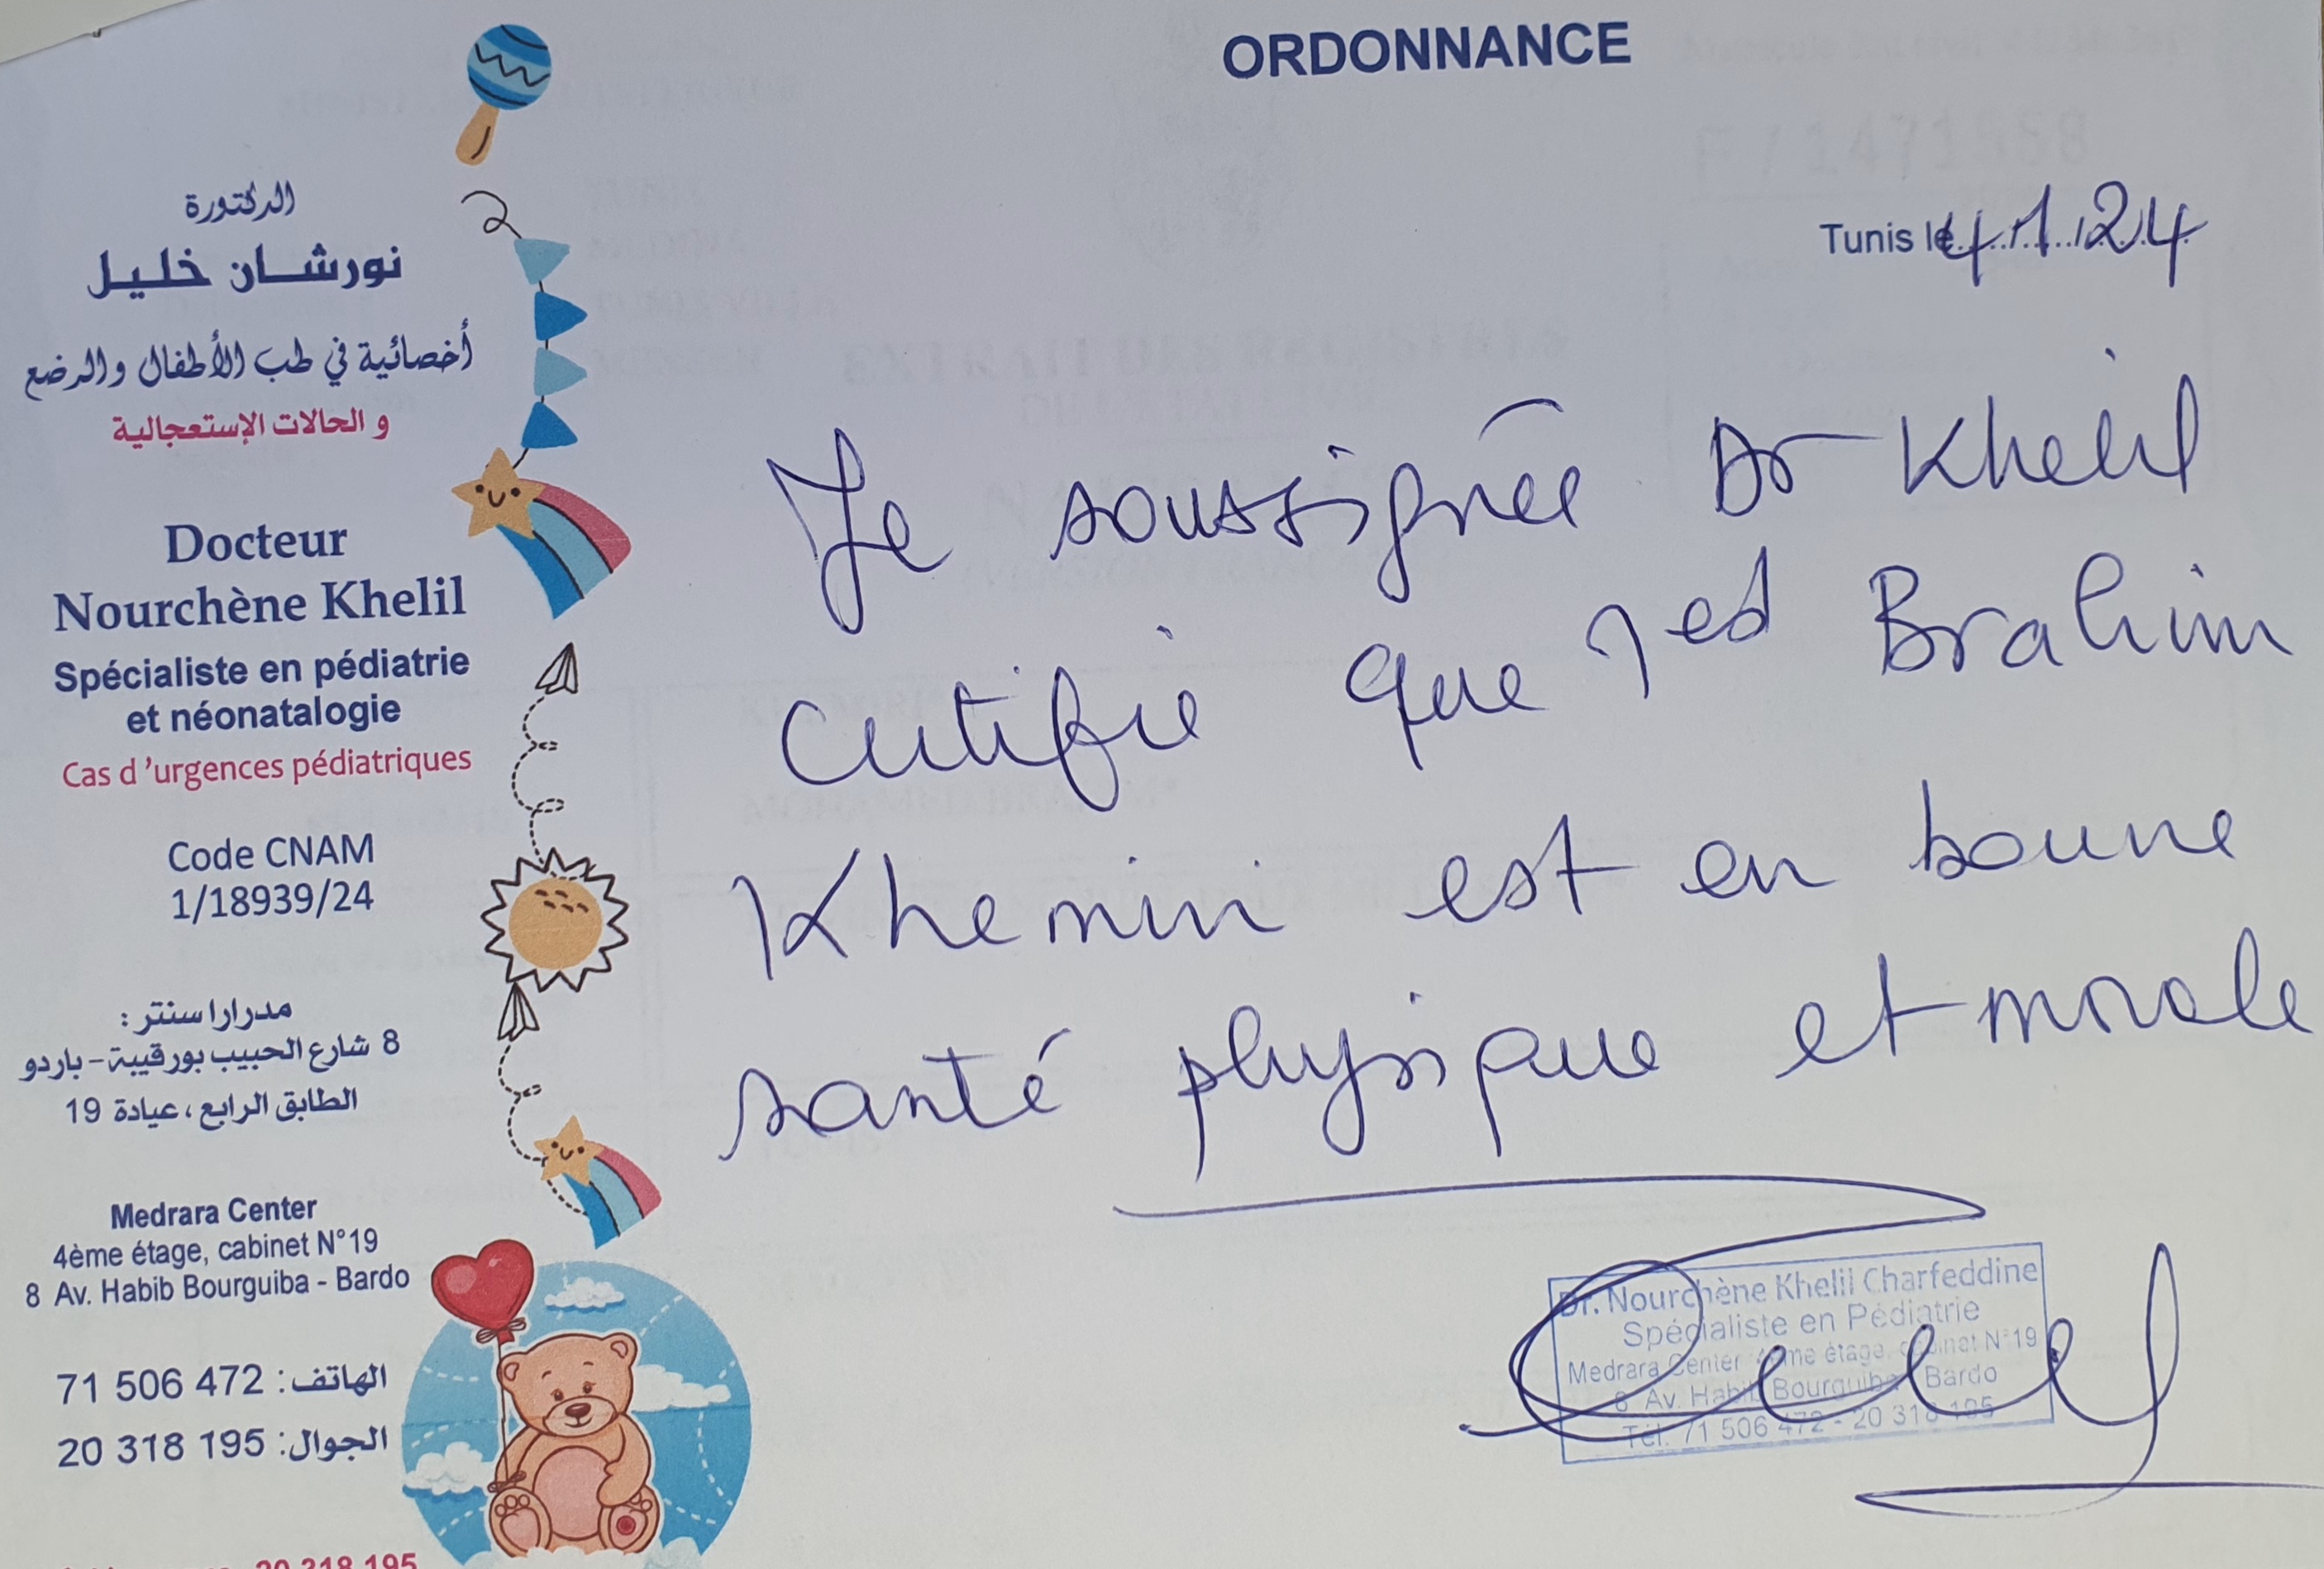 ORDONNANCE
الدكتورة
نورشان خليل
أخصائية في طب الأطفال والرضع
و الحالات الإستعجالية
Docteur
Nourchène Khelil
Spécialiste en pédiatrie
et néonatalogie
Cas d'urgences pédiatriques
Code CNAM
1/18939/24
مدرارا سنتر :
8 شارع الحبيب بورقيبة - باردو
الطابق الرابع، عيادة 19
Medrara Center
4ème étage, cabinet N°19
8 Av. Habib Bourguiba - Bardo
الهاتف: 71 506 472
الجوال: 20 318 195
20 318 195
Tunis le 4/1/24
Je soussignée Dr Khelil
certifie que Med Brahim
Khemiri est en bonne
santé physique et morale
Dr. Nourchène Khelil Charfeddine
Spécialiste en Pédiatrie
Medrara Center 4ème étage, cabinet N°19
8 Av. Habib Bourguiba Bardo
Tél. 71 506 472 - 20 318 195